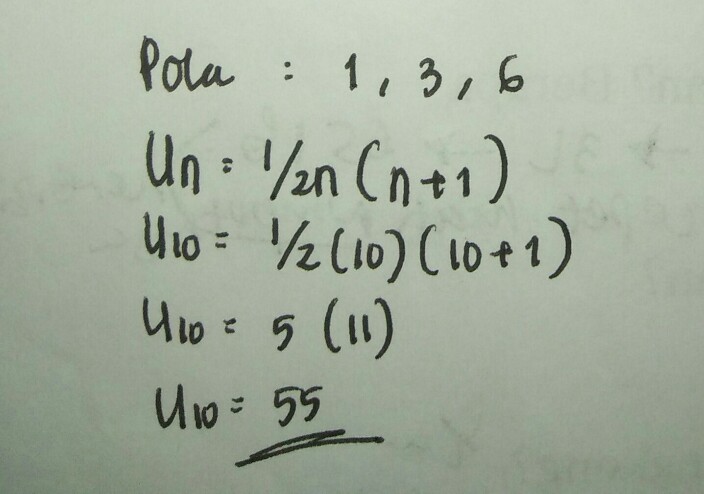 Pola : 1, 3, 6
Un = 1/2n (n+1)
U10 = 1/2 (10) (10+1)
U10 = 5 (11)
U10 = 55